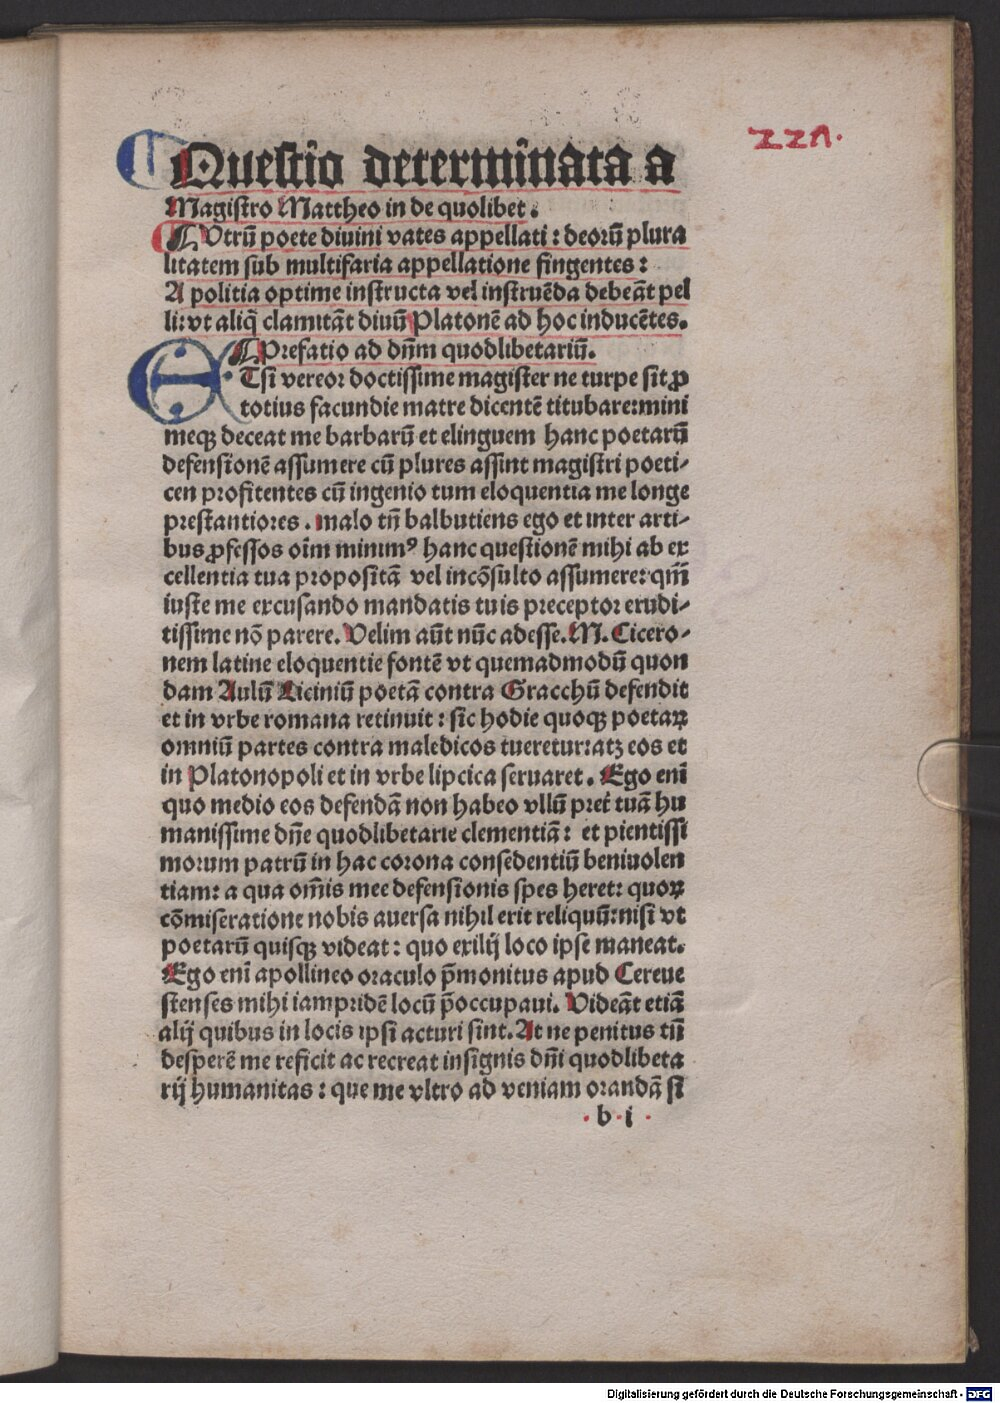 221.
Questio determinata a
Magistro Mattheo in de quolibet.
Vtrū poete diuini vates appellati: deorū plura
litatem sub multifaria appellatione fingentes:
A politia optime instructa vel instruēda debeāt pel
li: vt aliq̄ clamitāt diuū Platonē ad hoc inducētes.
Prefatio ad dn̄m quodlibetariū.
ETsi vereor doctissime magister ne turpe sit ꝓ
totius facundie matre dicentē titubare: mini
meqꝫ deceat me barbarū et elinguem hanc poetarū
defensionē assumere cū plures assint magistri poeti⸗
cen profitentes cū ingenio tum eloquentia me longe
prestantiores. malo tn̄ balbutiens ego et inter arti⸗
bus ꝓfessos oīm minimꝰ hanc questionē mihi ab ex
cellentia tua propositā vel incōsulto assumere: qm̄
iuste me excusando mandatis tuis preceptor erudi⸗
tissime nō parere. Velim aūt nūc adesse. M. Cicero⸗
nem latine eloquentie fontē vt quemadmodū quon
dam Aulū Liciniū poetā contra Gracchū defendit
et in vrbe romana retinuit: sic hodie quoqꝫ poetaꝝ
omniū partes contra maledicos tueretur: atꝫ eos et
in Platonopoli et in vrbe lipcica seruaret. Ego enī
quo medio eos defendā non habeo vllū preť tuā hu
manissime dn̄e quodlibetarie clementiā: et pientissi
morum patrū in hac corona consedentiū beniuolen
tiam: a qua om̄is mee defensionis spes heret: quoꝝ
cōmiseratione nobis auersa nihil erit reliquū: nisi vt
poetarū quisqꝫ videat: quo exilij loco ipse maneat.
Ego enī apollineo oraculo p̄monitus apud Cereue
stenses mihi iampridē locū p̄occupaui. Videāt etiā
alij quibus in locis ipsi acturi sint. At ne penitus tn̄
desperē me reficit ac recreat insignis dn̄i quodlibeta
rij humanitas: que me vltro ad veniam orandā si
b i
Digitalisierung gefördert durch die Deutsche Forschungsgemeinschaft - DFG